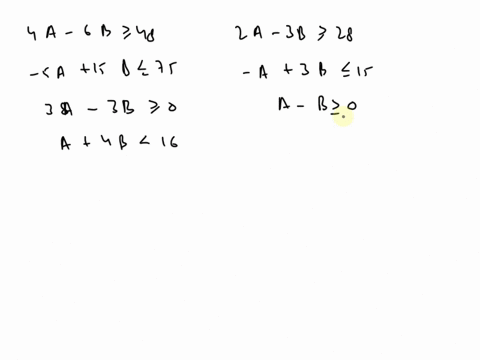 4A - 6B ≥ 48
-5A + 15B ≤ 75
3A - 3B ≥ 0
A + 4B < 16
2A - 3B ≥ 28
-A + 3B ≤ 15
A - B ≥ 0